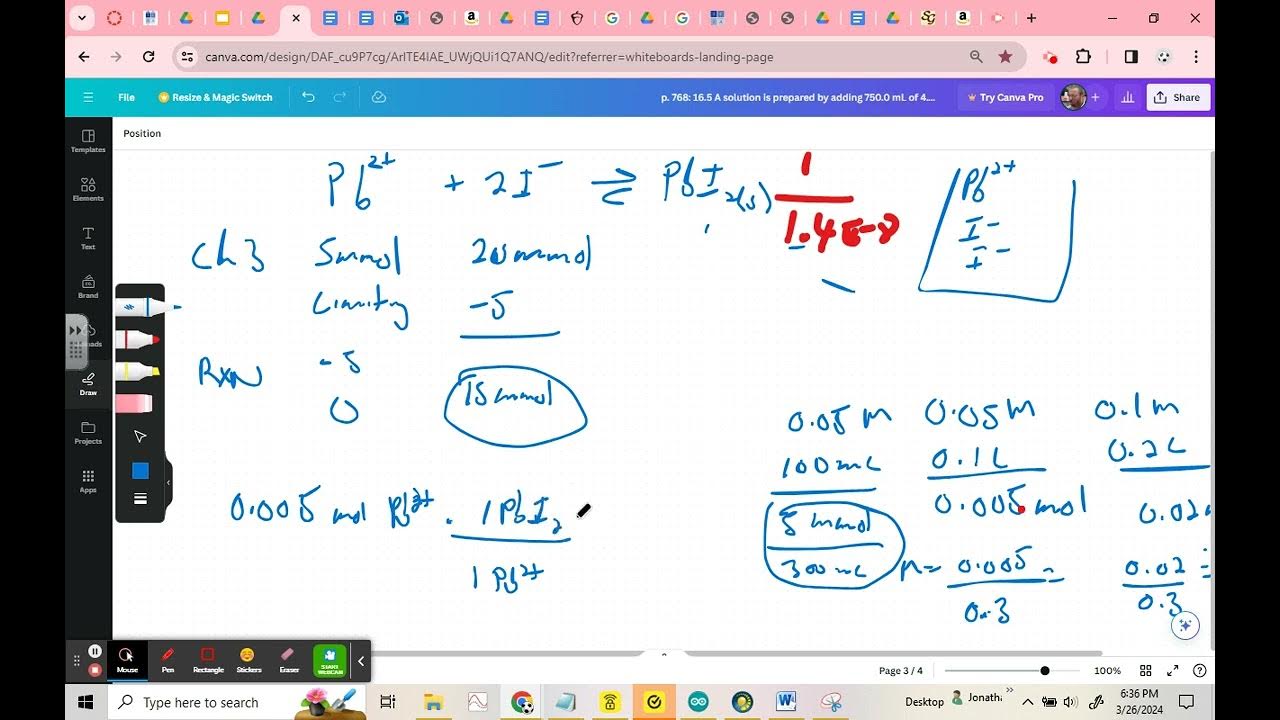 canva.com/design/DAF_cu9P7cg/ArlTE4lAE_UWjQUi1Q7ANQ/edit?referrer=whiteboards-landing-page
File
Resize & Magic Switch
p. 768: 16.5 A solution is prepared by adding 750.0 mL of 4....
Try Canva Pro
Share
Position
Templates
Elements
Text
Brand
Draw
Projects
Apps
Pb²⁺ + 2I⁻ ⇌ PbI₂(s)
1
1.4E-8
Pb²⁺
I⁻
I⁻
Ch 3 5mmol 20mmol
-5
RXN -5
0 15 mmol
0.05 M 0.05M 0.1M
100 mL 0.1L 0.2L
5 mmol 0.005 mol 0.02
300 mL M= 0.005 = 0.02 =
0.3 0.3
0.005 mol Pb²⁺ . 1 PbI₂
1 Pb²⁺
Mouse
Pen
Rectangle
Stickers
Eraser
Page 3 / 4
100%
Type here to search
Desktop
Jonath
6:36 PM
3/26/2024